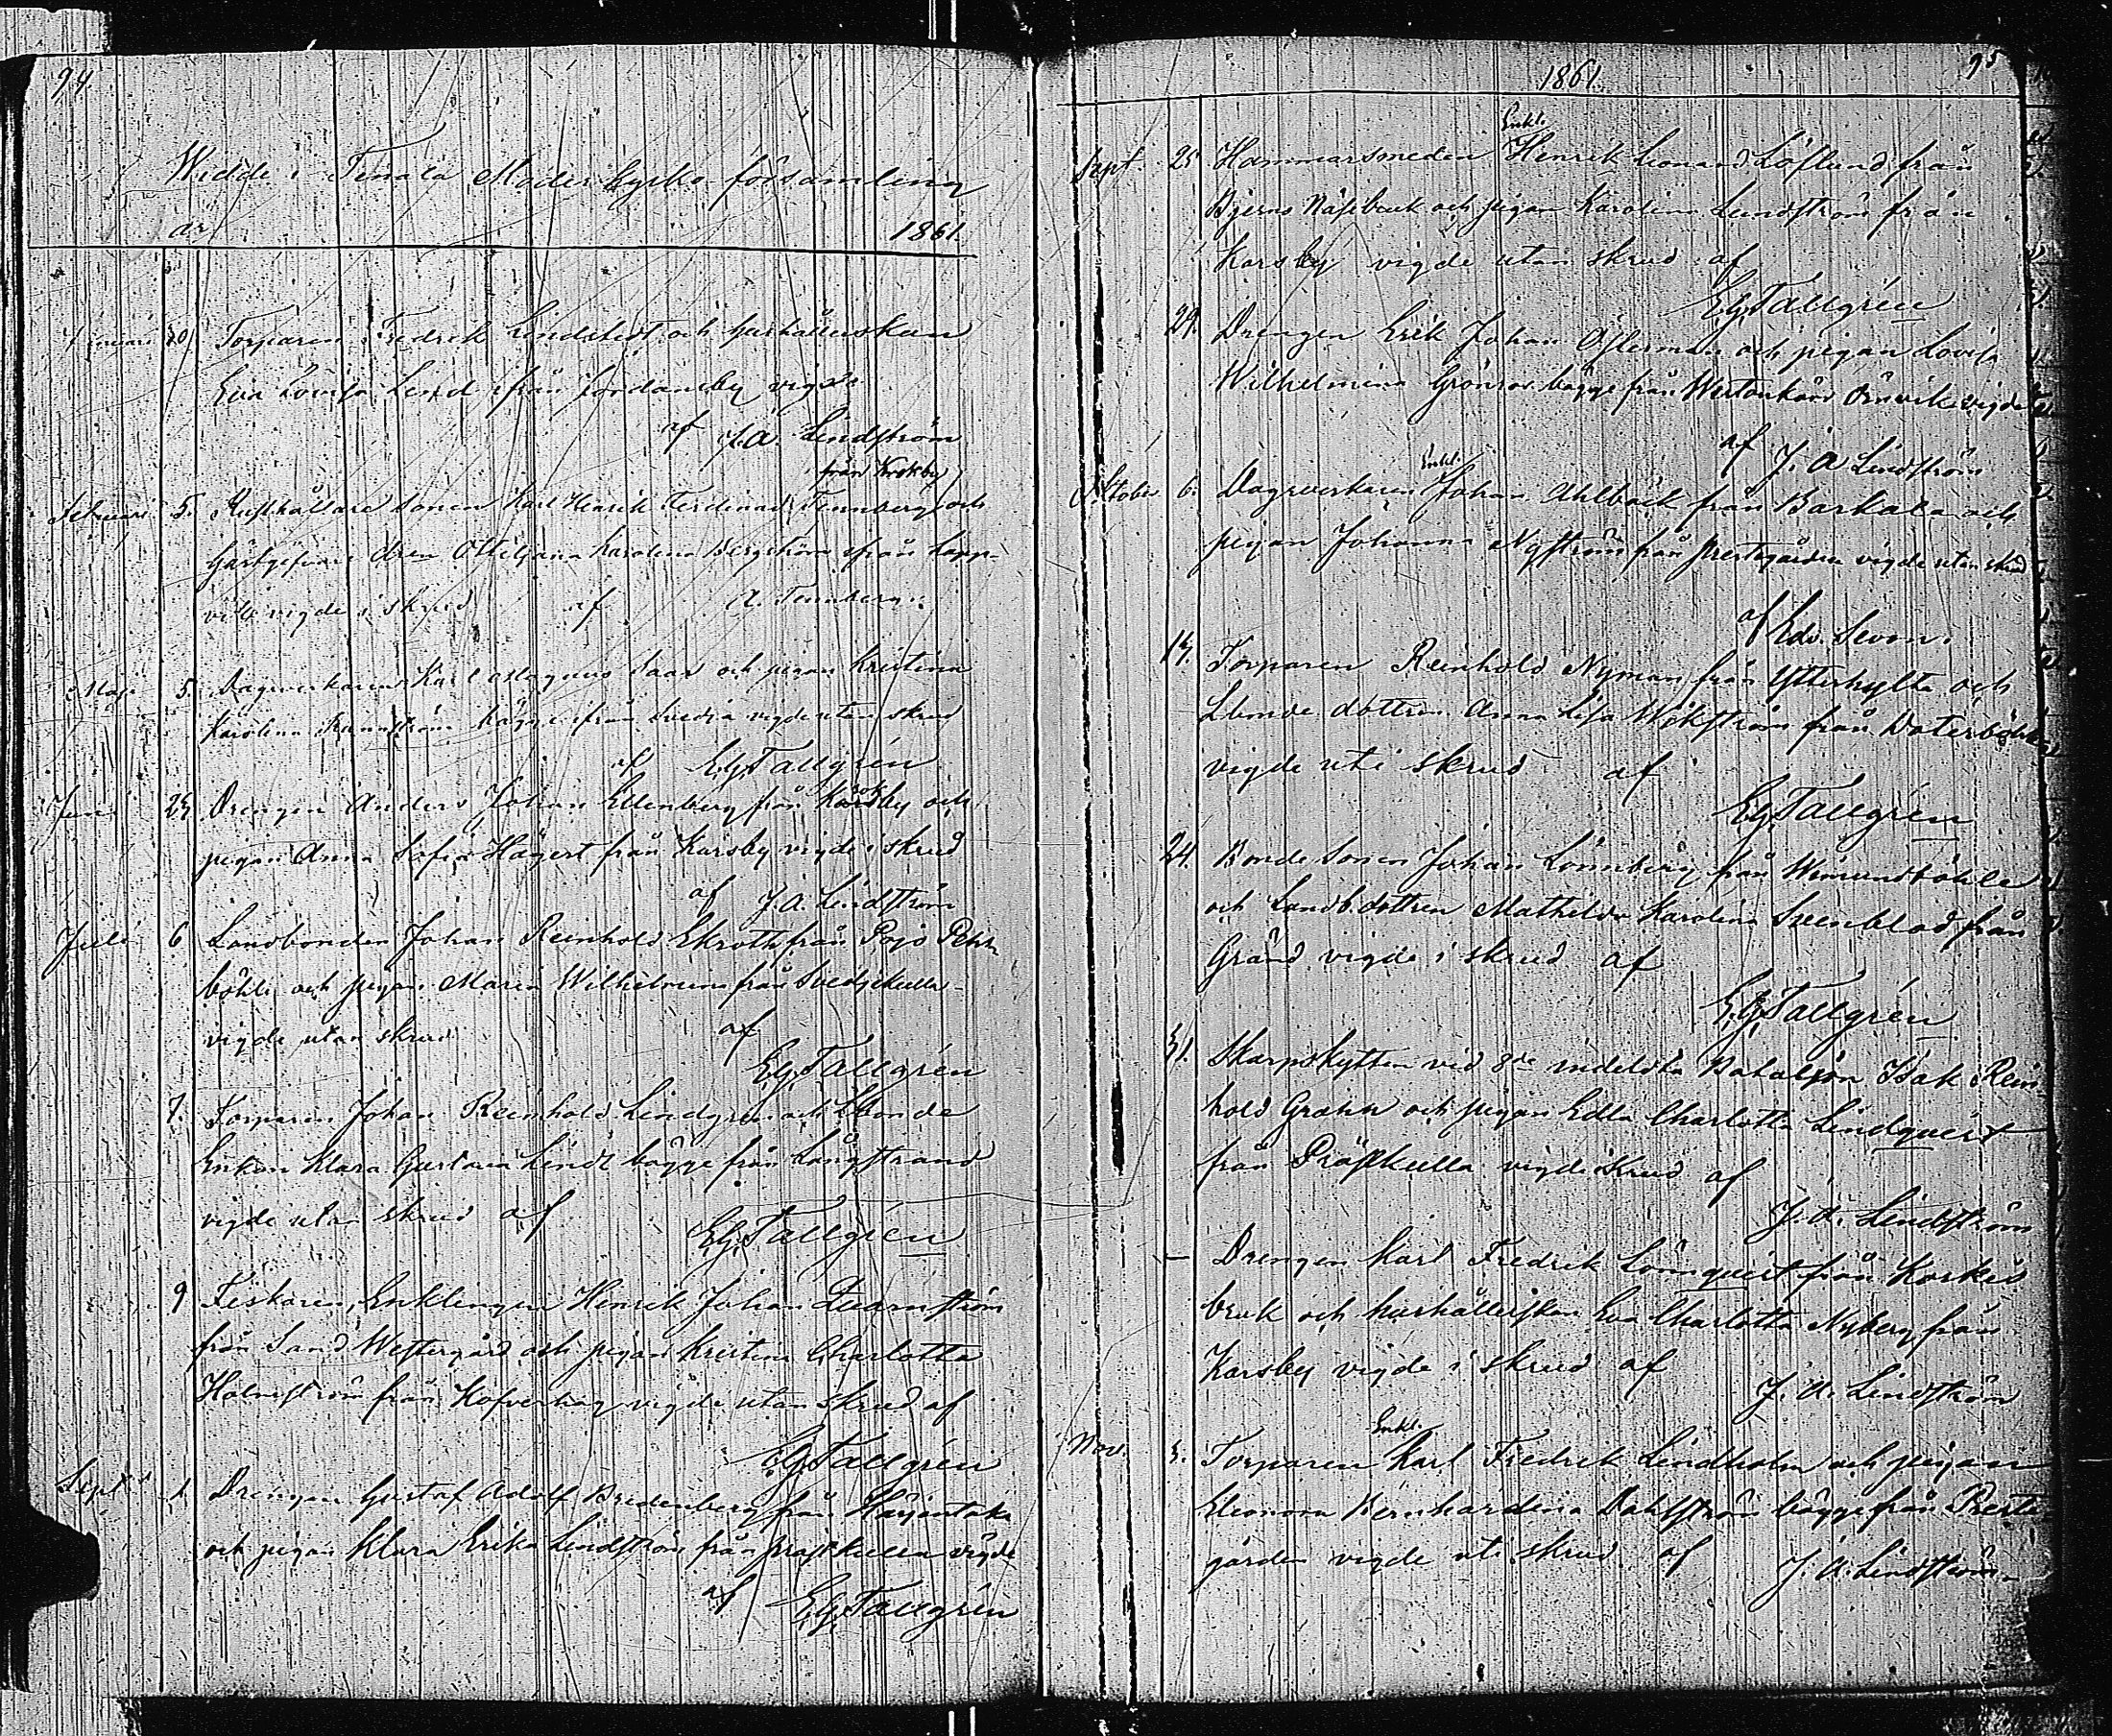 94.
Widde i Tenala Moderkyrko församling
år 1861.
Januari 20 Torparen Fredrik Lindstedt och hushållerskan
Eva Lovisa Lind från Jordansby vigde
af J. A. Lindström
från Krokby
Februari 5. Rusthållare sonen Karl Henrik Ferdinand Tennberg och
Gästgifvare dren Karolina Bergström från Lapp-
vik vigde i skrud af A. Tennberg.
Maji 5 Dagsverkaren Karl och pigan Kristina
Karolina bägge från vigde utan skrud
af E.G. Tallgrén
Juni 24 Drengen Anders Johan Ellenberg från och
pigan Anna Sofia Hägert från Karsby vigde i skrud
af J. A. Lindström
Juli 6 Landbonden Johan Reinhold Ekroth från Pojo Pehr
böhle och pigan Maria Wilhelmina från Svedjekulla
vigde utan skrud af
E.G. Tallgrén
7. Torparen Johan Reinhold Lindgren och Lbonde
Enkan Klara Gustava Lindt bägge från Långstrand
vigde utan skrud af E.G. Tallgrén
9 Fiskaren, Enklingen Henrik Johan Quarnström
från Sand Westergård och pigan Kristina Charlotta
Holmström från Kofverhag vigde utan skrud af
E.G. Tallgrén
Sept. 1 Drengen Gustaf Adolf Bredenberg från
och pigan Klara Erika Lindström från Präskulla vigde
af E.G. Tallgrén
1861. 95
Enkl.
Sept. 25 Hammarsmeden Henrik Leonard Löflund från
Björns och pigan Karolina Lundström från
Karsby vigde utan skrud af
E.G. Tallgrén
29. Drengen Erik Johan Österman och pigan Lovisa
Wilhelmina Grönroos bägge från vigde
af J. A Lindström
Enkl.
October 6. Dagsverkaren Johan Ahlbäck från Barkala och
pigan Johanna Nyström från prestgården vigde utan skrud
af Edv. Sevon.
14. Torparen Reinhold Nyman från Ytterkylta och
Lbonde dottren Anna Lisa Wikström från Dalerböhle
vigde uti skrud af
E.G. Tallgrén
24. Bonde Sonen Johan Lönnberg från Wimundböhle
och Landb. dottren Mathilda Karolina Svenblad från
Gränd vigde i skrud af
E.G. Tallgrén
31. Skarpskytten vid 8de indeldta Bataljon Isak Rein
hold Grahn och pigan Edla Charlotta Lindqvist
från Präskulla vigde i skrud af
J. A. Lindström
— Drengen Karl Fredrik Lönnqvist från Koskis
bruk och hushållerskan Eva Charlotta Nyberg från
Karsby vigde i skrud af
J. A. Lindström
Enkl.
Nov. 3. Torparen Karl Fredrik Lindholm och pigan
Eleonora Bernhardina Dahlström bägge från Preste
gården vigde uti skrud af J. A. Lindström.